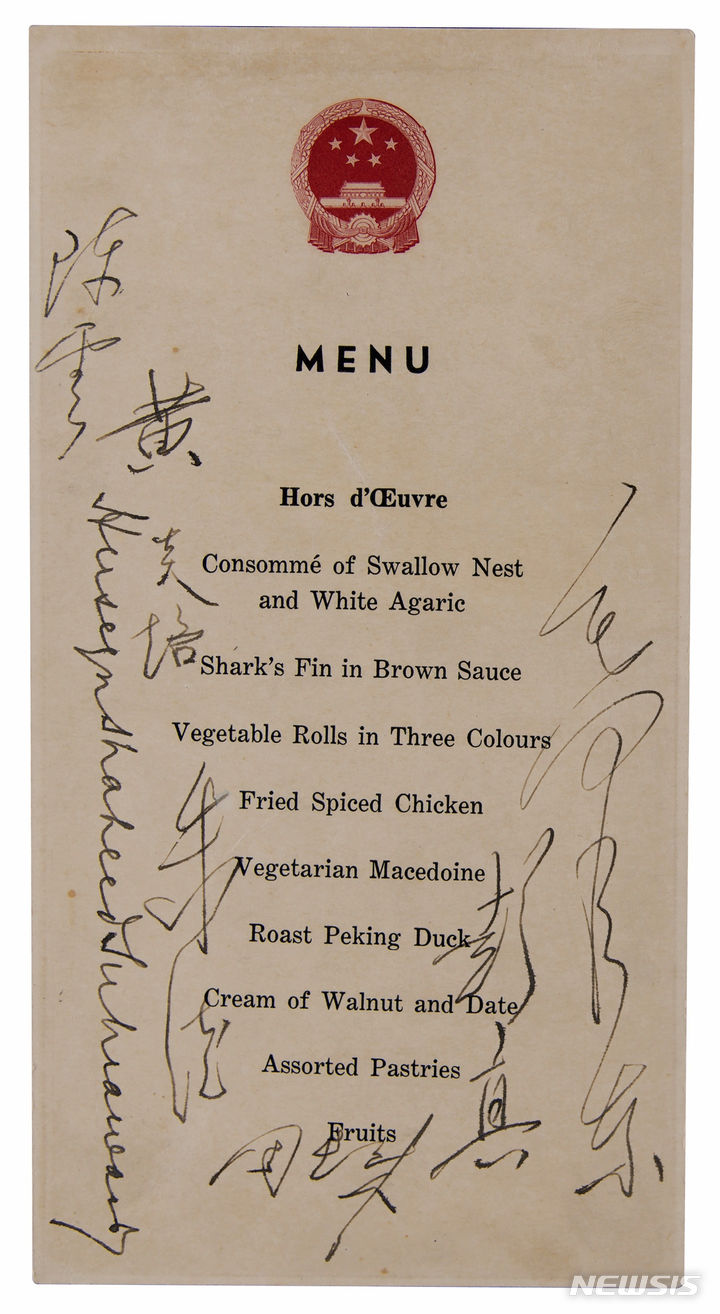 MENU
Hors d'Œuvre
Consommé of Swallow Nest
and White Agaric
Shark's Fin in Brown Sauce
Vegetable Rolls in Three Colours
Fried Spiced Chicken
Vegetarian Macedoine
Roast Peking Duck
Cream of Walnut and Date
Assorted Pastries
Fruits
黄炎培
Huseyn Shaheed Suhrawardy
朱德
周恩来
彭真
毛泽东
NEWSIS